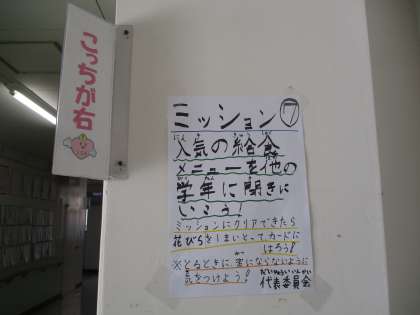 こっちが右
ミッション⑦
人気の給食
メニューを他の
学年に聞きに
いこう！
ミッションにクリアできたら
花びらを1まいとってカードに
はろう！
※とるときに、雑にならないように
気をつけよう！
だいひょういいんかい
代表委員会